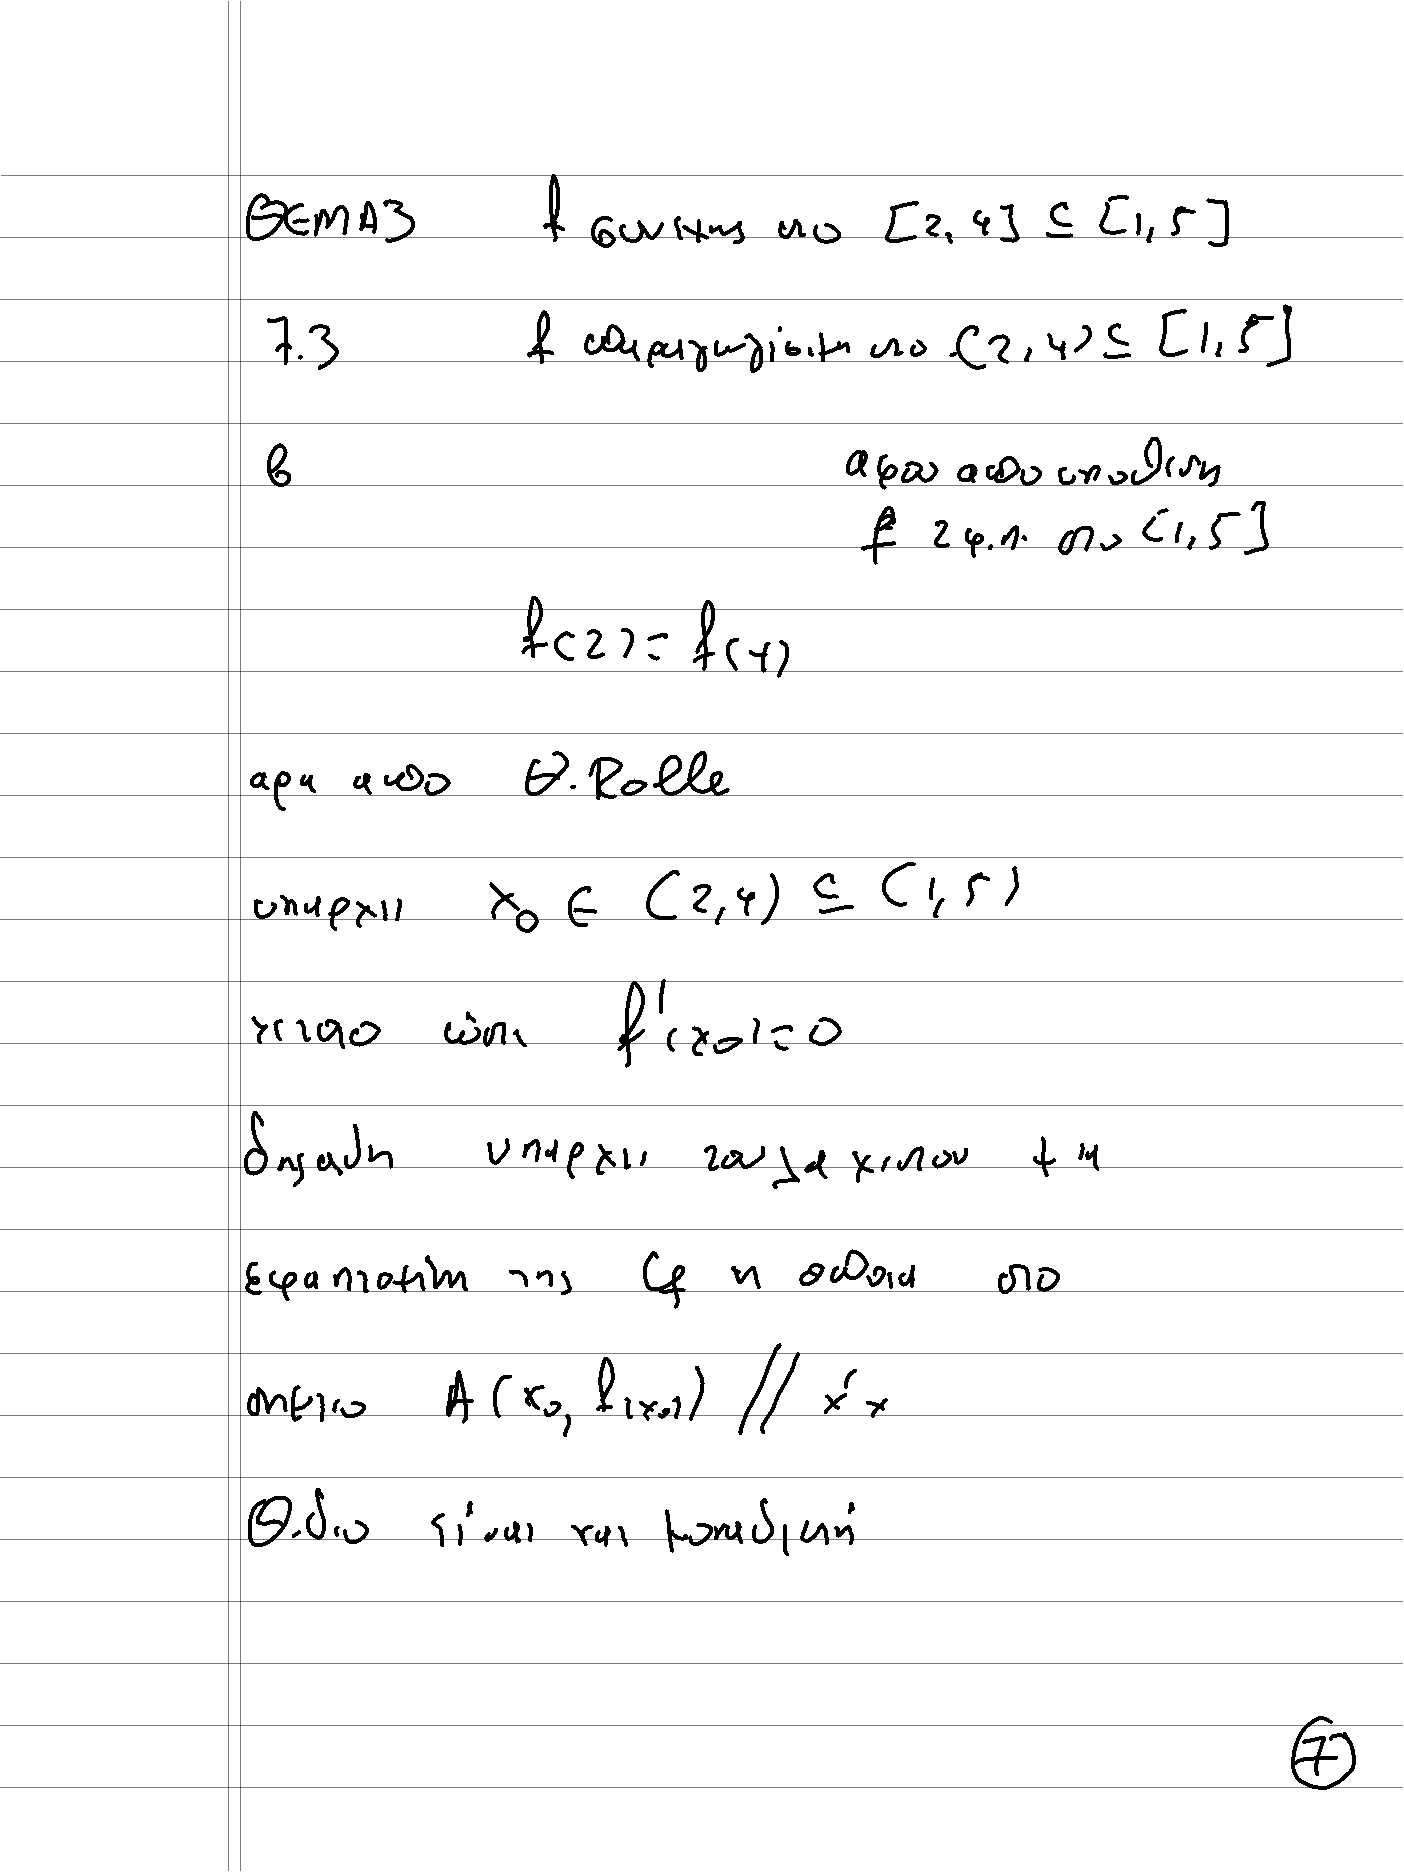 ΘΕΜΑ 3 f συνεχης στο [2,4] ⊆ [1,5]
7.3 f παραγωγισιμη στο (2,4) ⊆ [1,5]
β αφου απο υποθεση
f 2 φ.π. στο [1,5]
f(2) = f(4)
αρα απο Θ.Rolle
υπαρχει x₀ ∈ (2,4) ⊆ (1,5)
τετοιο ώστε f'(x₀) = 0
δηλαδη υπαρχει τουλαχιστον μια
εφαπτομενη της Cf η οποια στο
σημειο A(x₀, f(x₀)) // x'x
Θ.δ.ο είναι και μοναδική
7